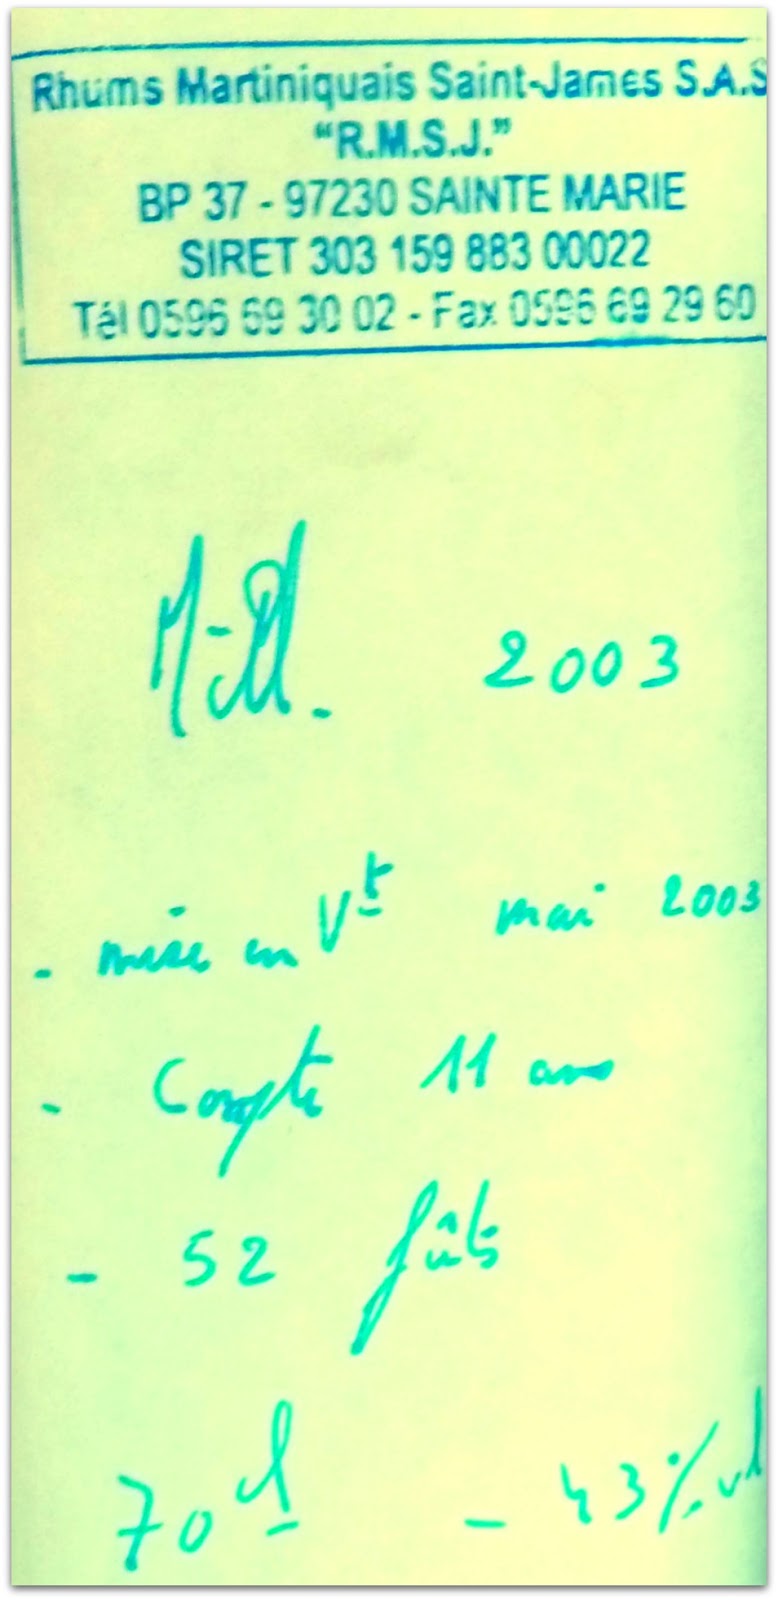 Rhums Martiniquais Saint-James S.A.S
“R.M.S.J.”
BP 37 - 97230 SAINTE MARIE
SIRET 303 159 883 00022
Tél 0596 69 30 02 - Fax 0596 69 29 60
2003
- mise en Vt mai 2003
- Compte 11 ans
- 52 fûts
70 cl - 43% vol